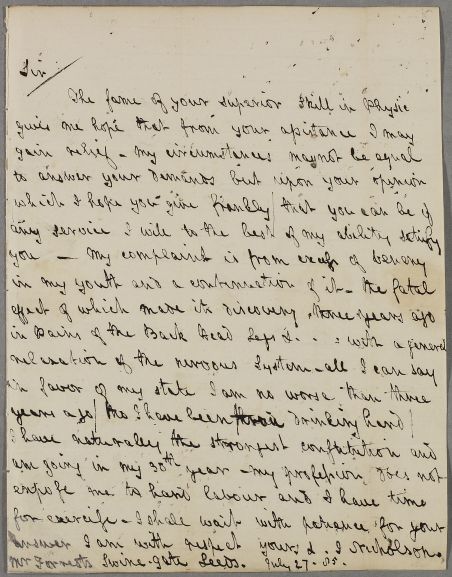 Sir
The fame of your superior skill in Physic
gives me hope that from your assistance I may
gain relief - my circumstances may not be equal
to answer your demands but upon your opinion
which I hope you give frankly / that you can be of
any service I will to the best of my ability satisfy
you — my complaint is from excess of venery
in my youth and a continuation of it - the fatal
effect of which made its discovery three years ago
in Pains of the Back Head Legs &. . . with a general
relaxation of the nervous System - all I can say
in favor of my state I am no worse than three
years ago / tho I have been drinking hard /
I have naturaley the strongest constitution and
am going in my 30th year - my profession does not
expose me to hard labour and I have time
for exercise - I shall wait with patience for your
answer I am with respect yours &. J Nicholson.
Mr Forrests Swine-Gate Leeds. July 27 - 85.